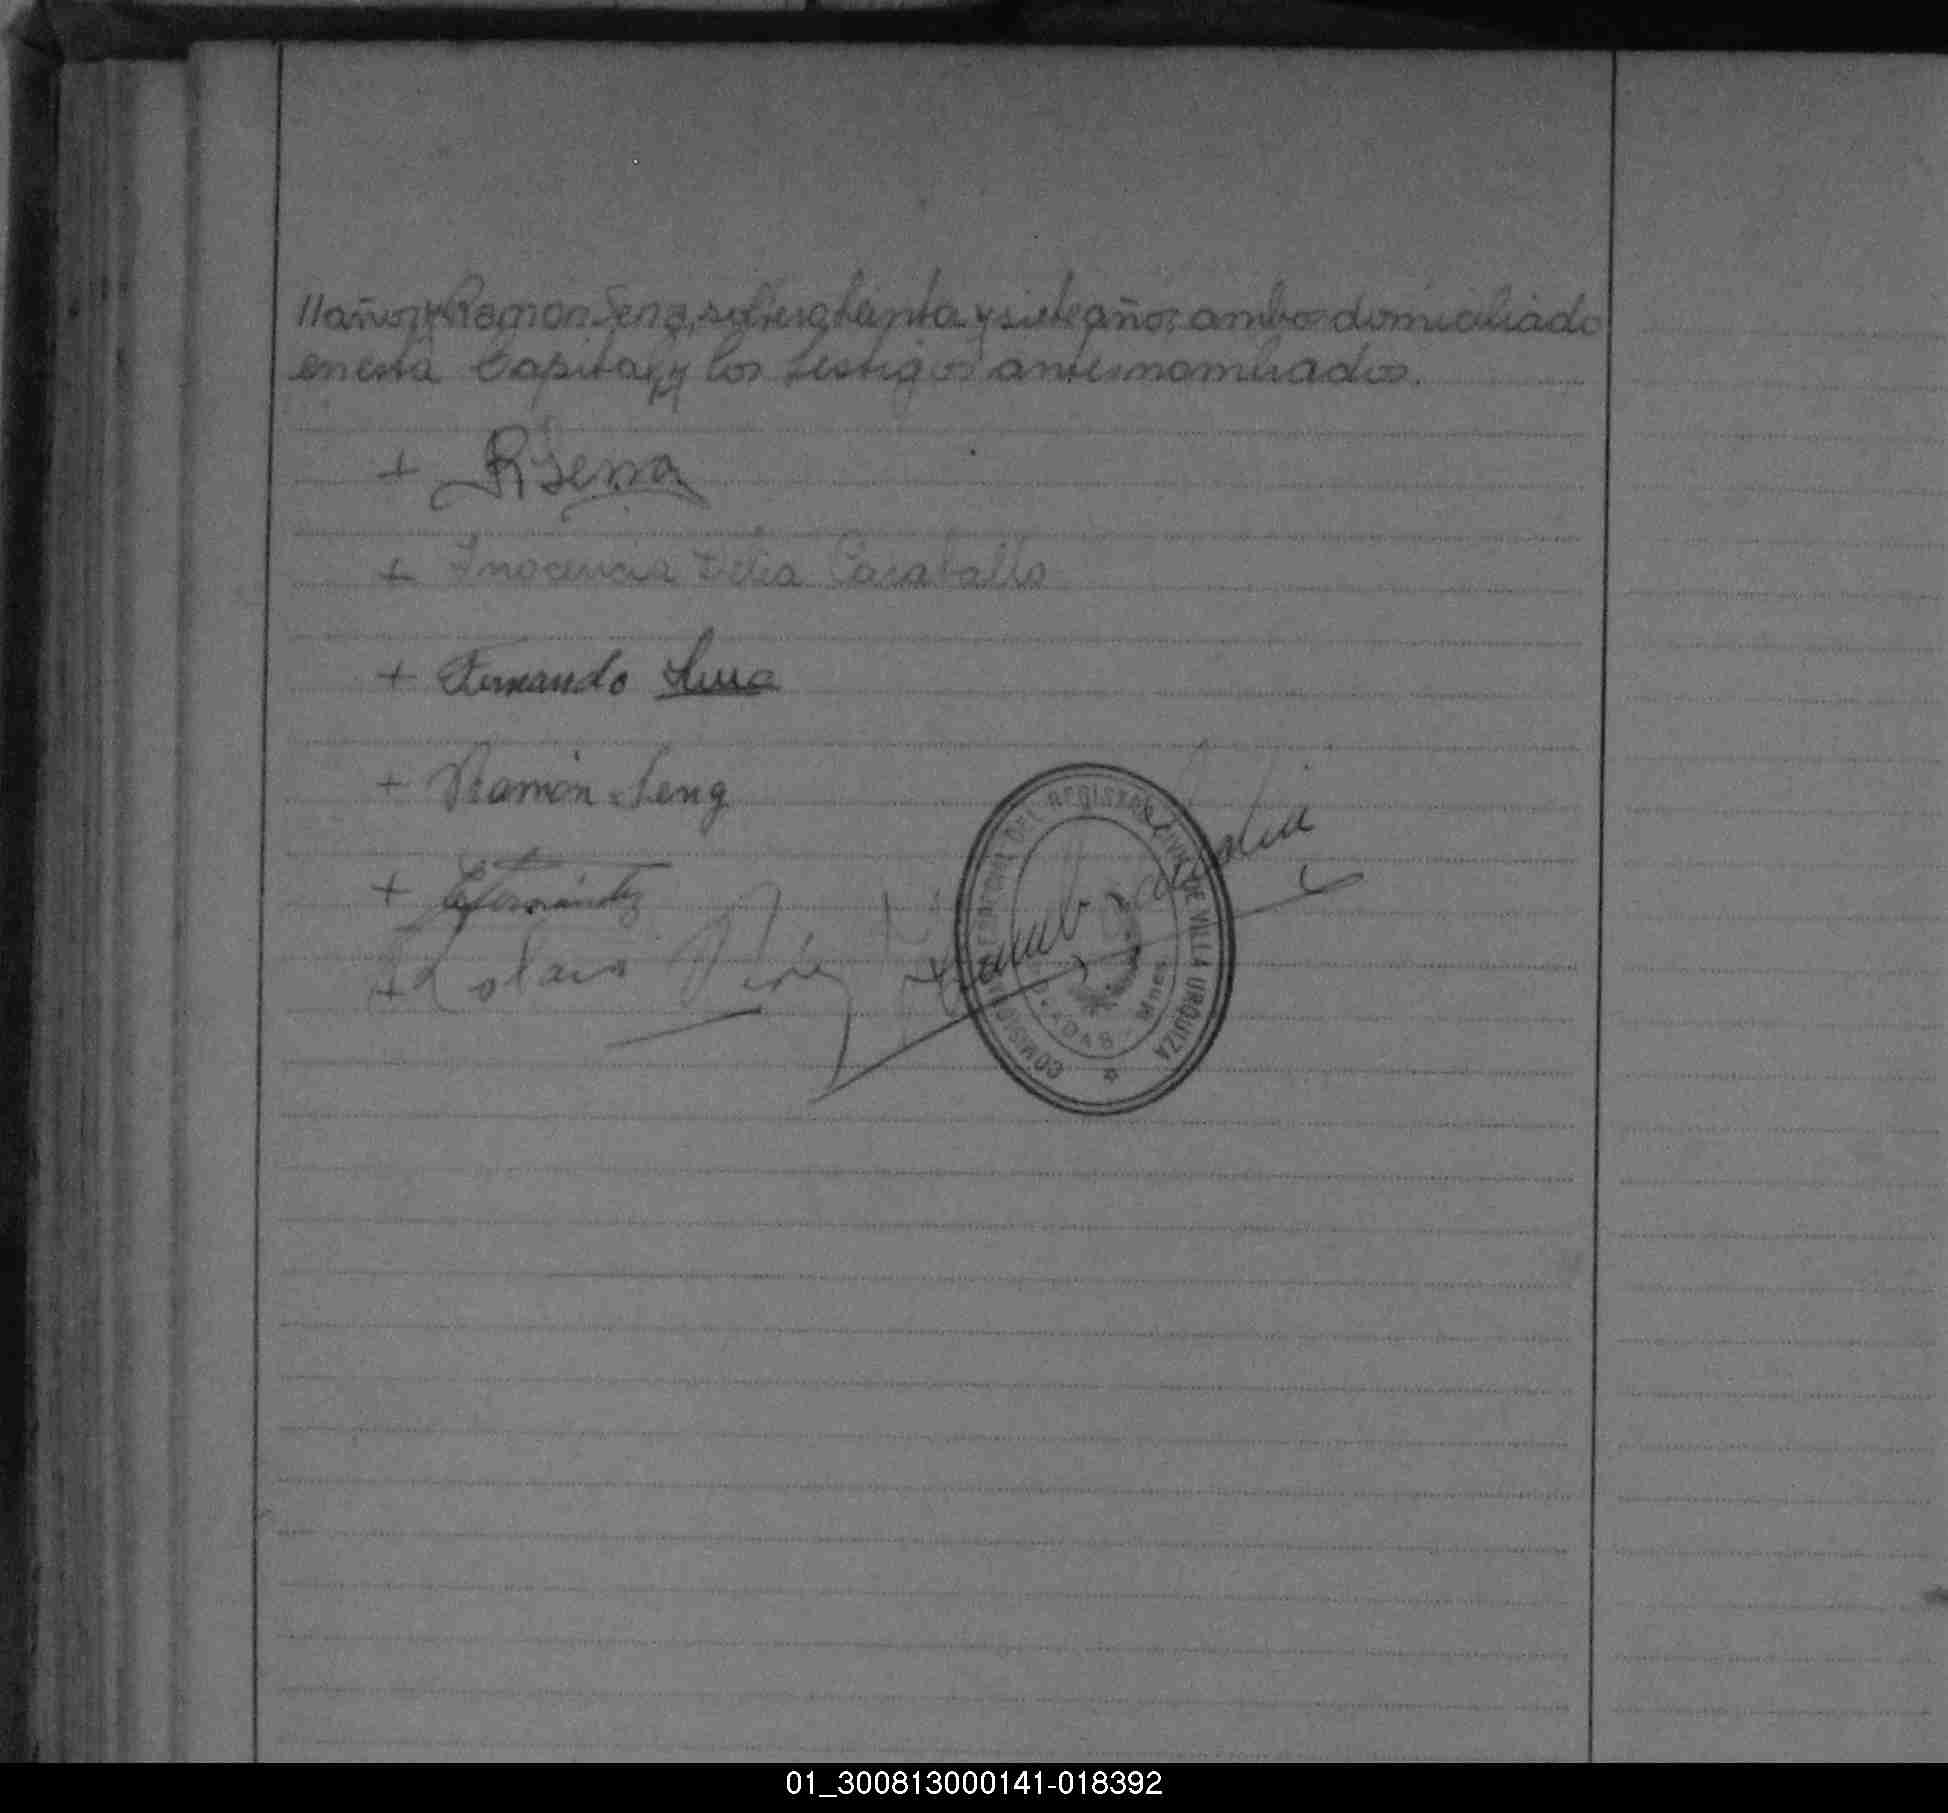 //años, y Ramón Sena, soltero, treinta y siete años, ambos domiciliado
en esta Capital, y los testigos antes nombrados.
+ RSena
+ Inocencia Delia Caraballo
+ Fernando
+ Ramón Sena
+ Fernández
COMISION DEL REGISTRO CIVIL DE VILLA URQUIZA
POSADAS - Mnes.
01_300813000141-018392